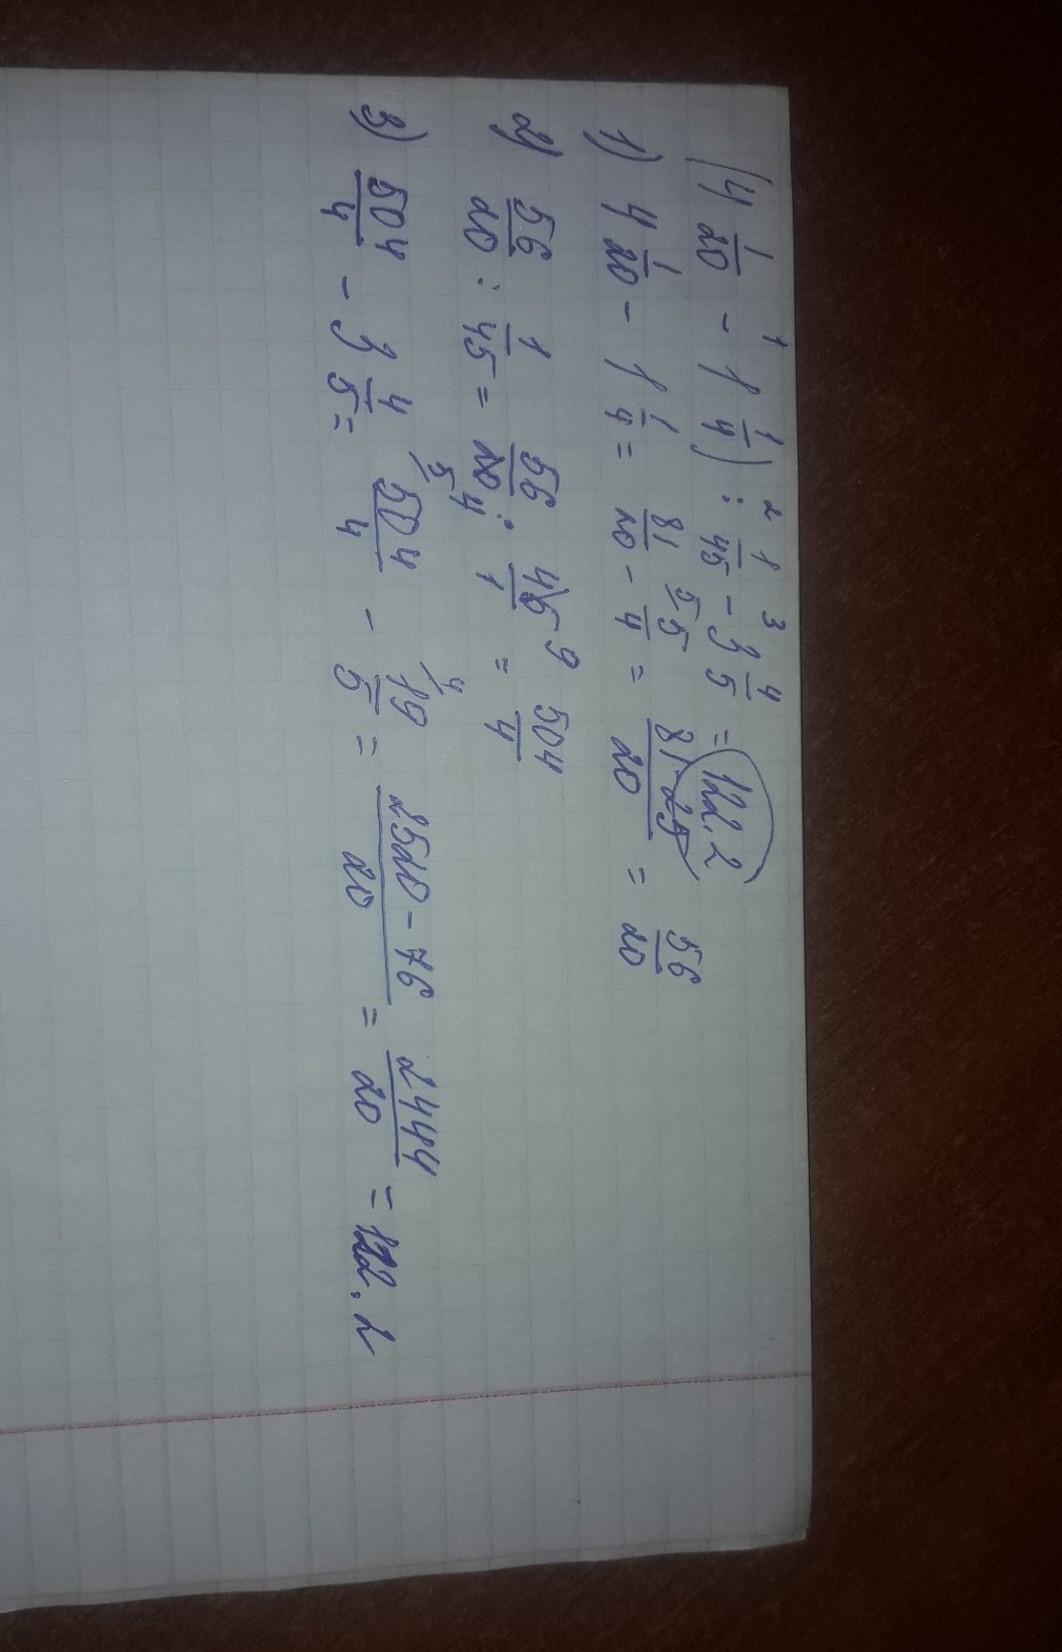 (4 1/20 - 1 1/4) : 1/45 - 3 4/5 = 122.2
1) 4 1/20 - 1 1/4 = 81/20 - 5/4 = 81-25/20 = 56/20
2) 56/20 : 1/45 = 56/20 : 45/1 = 504/4
3) 504/4 - 3 4/5 = 504/4 - 19/5 = 2520-76/20 = 2444/20 = 122.2